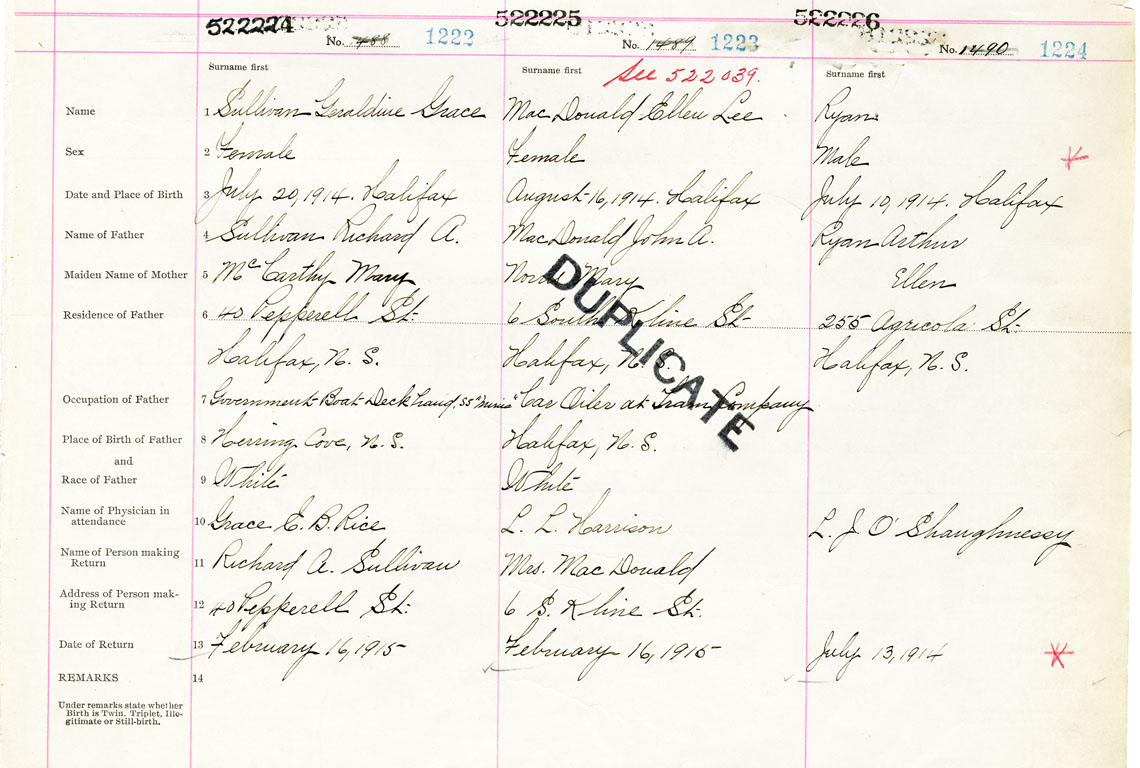 522224 522225 522226
No. 488 1222 No. 1489 1223 No. 1490 1224
Surname first Surname first See 522039. Surname first
Name 1 Sullivan Geraldine Grace MacDonald Ellen Lee Ryan
Sex 2 Female Female Male
Date and Place of Birth 3 July 20, 1914. Halifax August 16, 1914. Halifax July 10, 1914. Halifax
Name of Father 4 Sullivan Richard A. MacDonald John A. Ryan Arthur
Maiden Name of Mother 5 McCarthy Mary Mary Ellen
Residence of Father 6 40 Pepperell St. 6 South Kline St. 255 Agricola St.
Halifax, N. S. Halifax, N. S. Halifax, N. S.
DUPLICATE
Occupation of Father 7 Government Boat Deckhand, SS Car Oiler at Tram Company
Place of Birth of Father 8 Herring Cove, N. S. Halifax, N. S.
and
Race of Father 9 White White
Name of Physician in
attendance 10 Grace E. B. Rice L. L. Harrison L. J. O'Shaughnessy
Name of Person making
Return 11 Richard A. Sullivan Mrs. MacDonald
Address of Person mak-
ing Return 12 40 Pepperell St. 6 S. Kline St.
Date of Return 13 February 16, 1915 February 16, 1915 July 13, 1914
REMARKS 14
Under remarks state whether
Birth is Twin. Triplet, Ille-
gitimate or Still-birth.